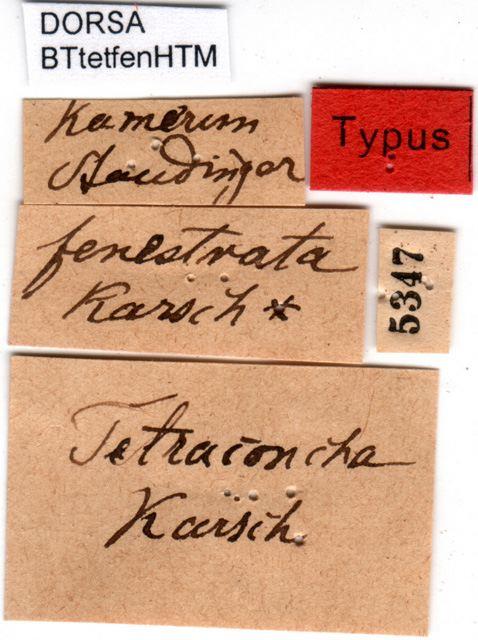 DORSA
BTtetfenHTM
Kamerun
Staudinger
Typus
fenestrata
Karsch *
5347
Tetraconcha
Karsch